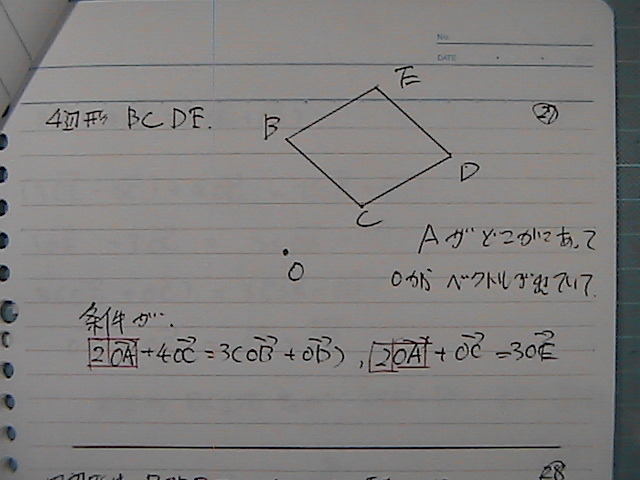 No.
DATE
E
4辺形 BCDE.
㉗
B
D
C
Aがどこかにあって
O
Oから ベクトルが出ていて
条件が、
2OA+4OC=3(OB+OD), 2OA+OC=3OE
㉘